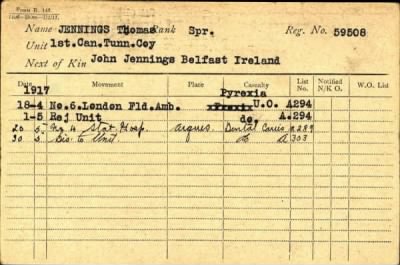 Form R. 149.
Name JENNINGS Thomas Rank Spr. Reg. No. 59508
Unit 1st.Can.Tunn.Coy
Next of Kin John Jennings Belfast Ireland
Date Movement Place Casualty List No. Notified N/K O. W.O. List
1917 Pyrexia
18-4 No.6.London Fld.Amb. U.O. A294
1-5 Rej Unit do. A.294
20 5. No. 4 Stat Hosp. arques. Dental Caries A289
30 5. Dis to Unit. do A303